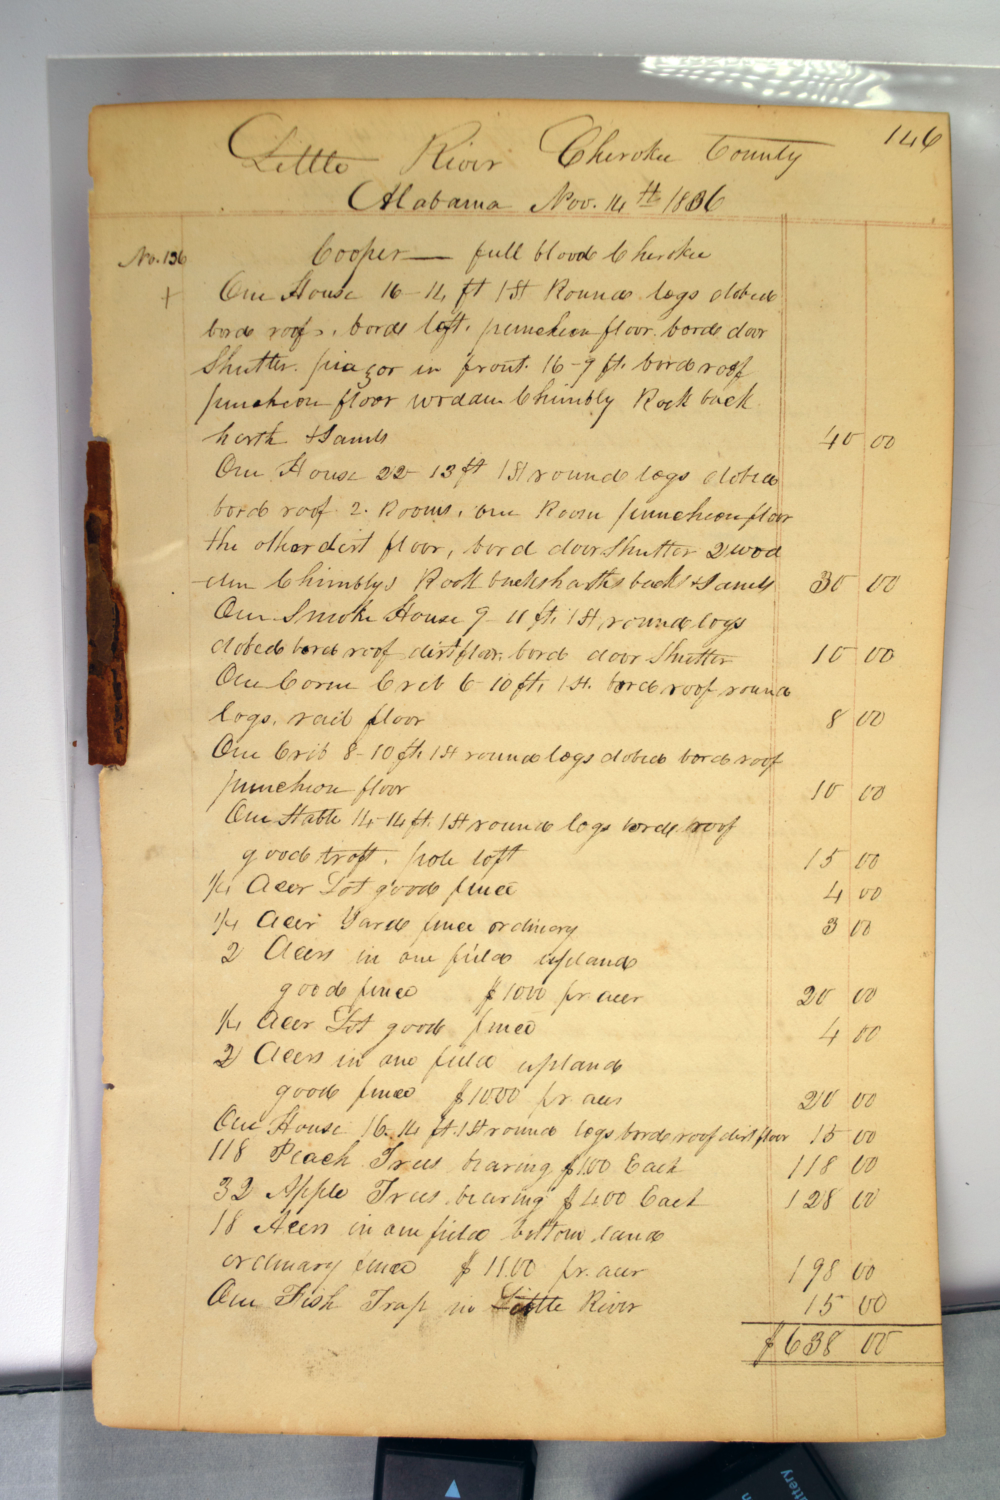 146
Little River Cherokee County
Alabama Nov. 14th 1836
No. 136
Cooper — full blood Cherokee
+ One House 16-14 ft 1 St Round logs dobed
bord roof, bord loft, puncheon floor, bord door
Shutter. piazor in front. 16-9 ft. bord roof
puncheon floor wooden Chimbly Rock back
harth & Jambs 40 00
One House 22-13 ft 1 St round logs dobed
bord roof 2. Rooms, one Room puncheon floor
the other dirt floor, bord door Shutter 2 wod
-den Chimblys Rock backs harths & Jambs 30 00
One Smoke House 9-11 ft. 1 St round logs
dobed bord roof dirt floor, bord door Shutter 10 00
One Corn Crib 6-10 ft. 1 St. bord roof round
logs, rail floor 8 00
One Crib 8-10 ft. 1 St round logs dobed bord roof
puncheon floor 10 00
One Stable 14-14 ft. 1 St round logs bord roof
good troft, pole loft 15 00
1/4 Acer Lot good fence 4 00
1/4 Acer Yard fence ordinary 3 00
2 Acers in one field upland
good fence $1000 pr. acer 20 00
1/4 Acer Lot good fence 4 00
2 Acers in one field upland
good fence $1000 pr. acer 20 00
One House 16.14 ft. 1 St round logs bord roof dirt floor 15 00
118 Peach Trees bearing $100 Each 118 00
32 Apple Trees bearing $400 Each 128 00
18 Acers in one field bottom land
ordinary fence $11.00 pr. acer 198 00
One Fish Trap in Little River 15 00
$638 00
ttery